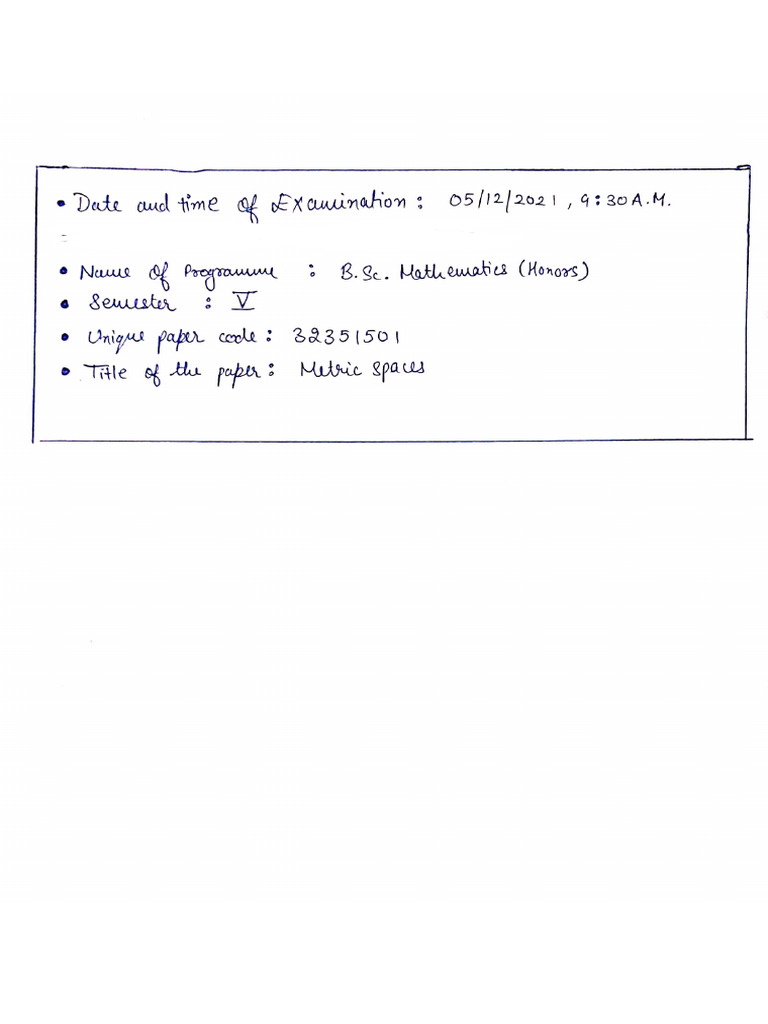 • Date and time of Examination : 05/12/2021 , 9:30 A.M.
• Name of Programme : B.Sc. Mathematics (Honors)
• Semester : V
• Unique paper code : 32351501
• Title of the paper : Metric Spaces